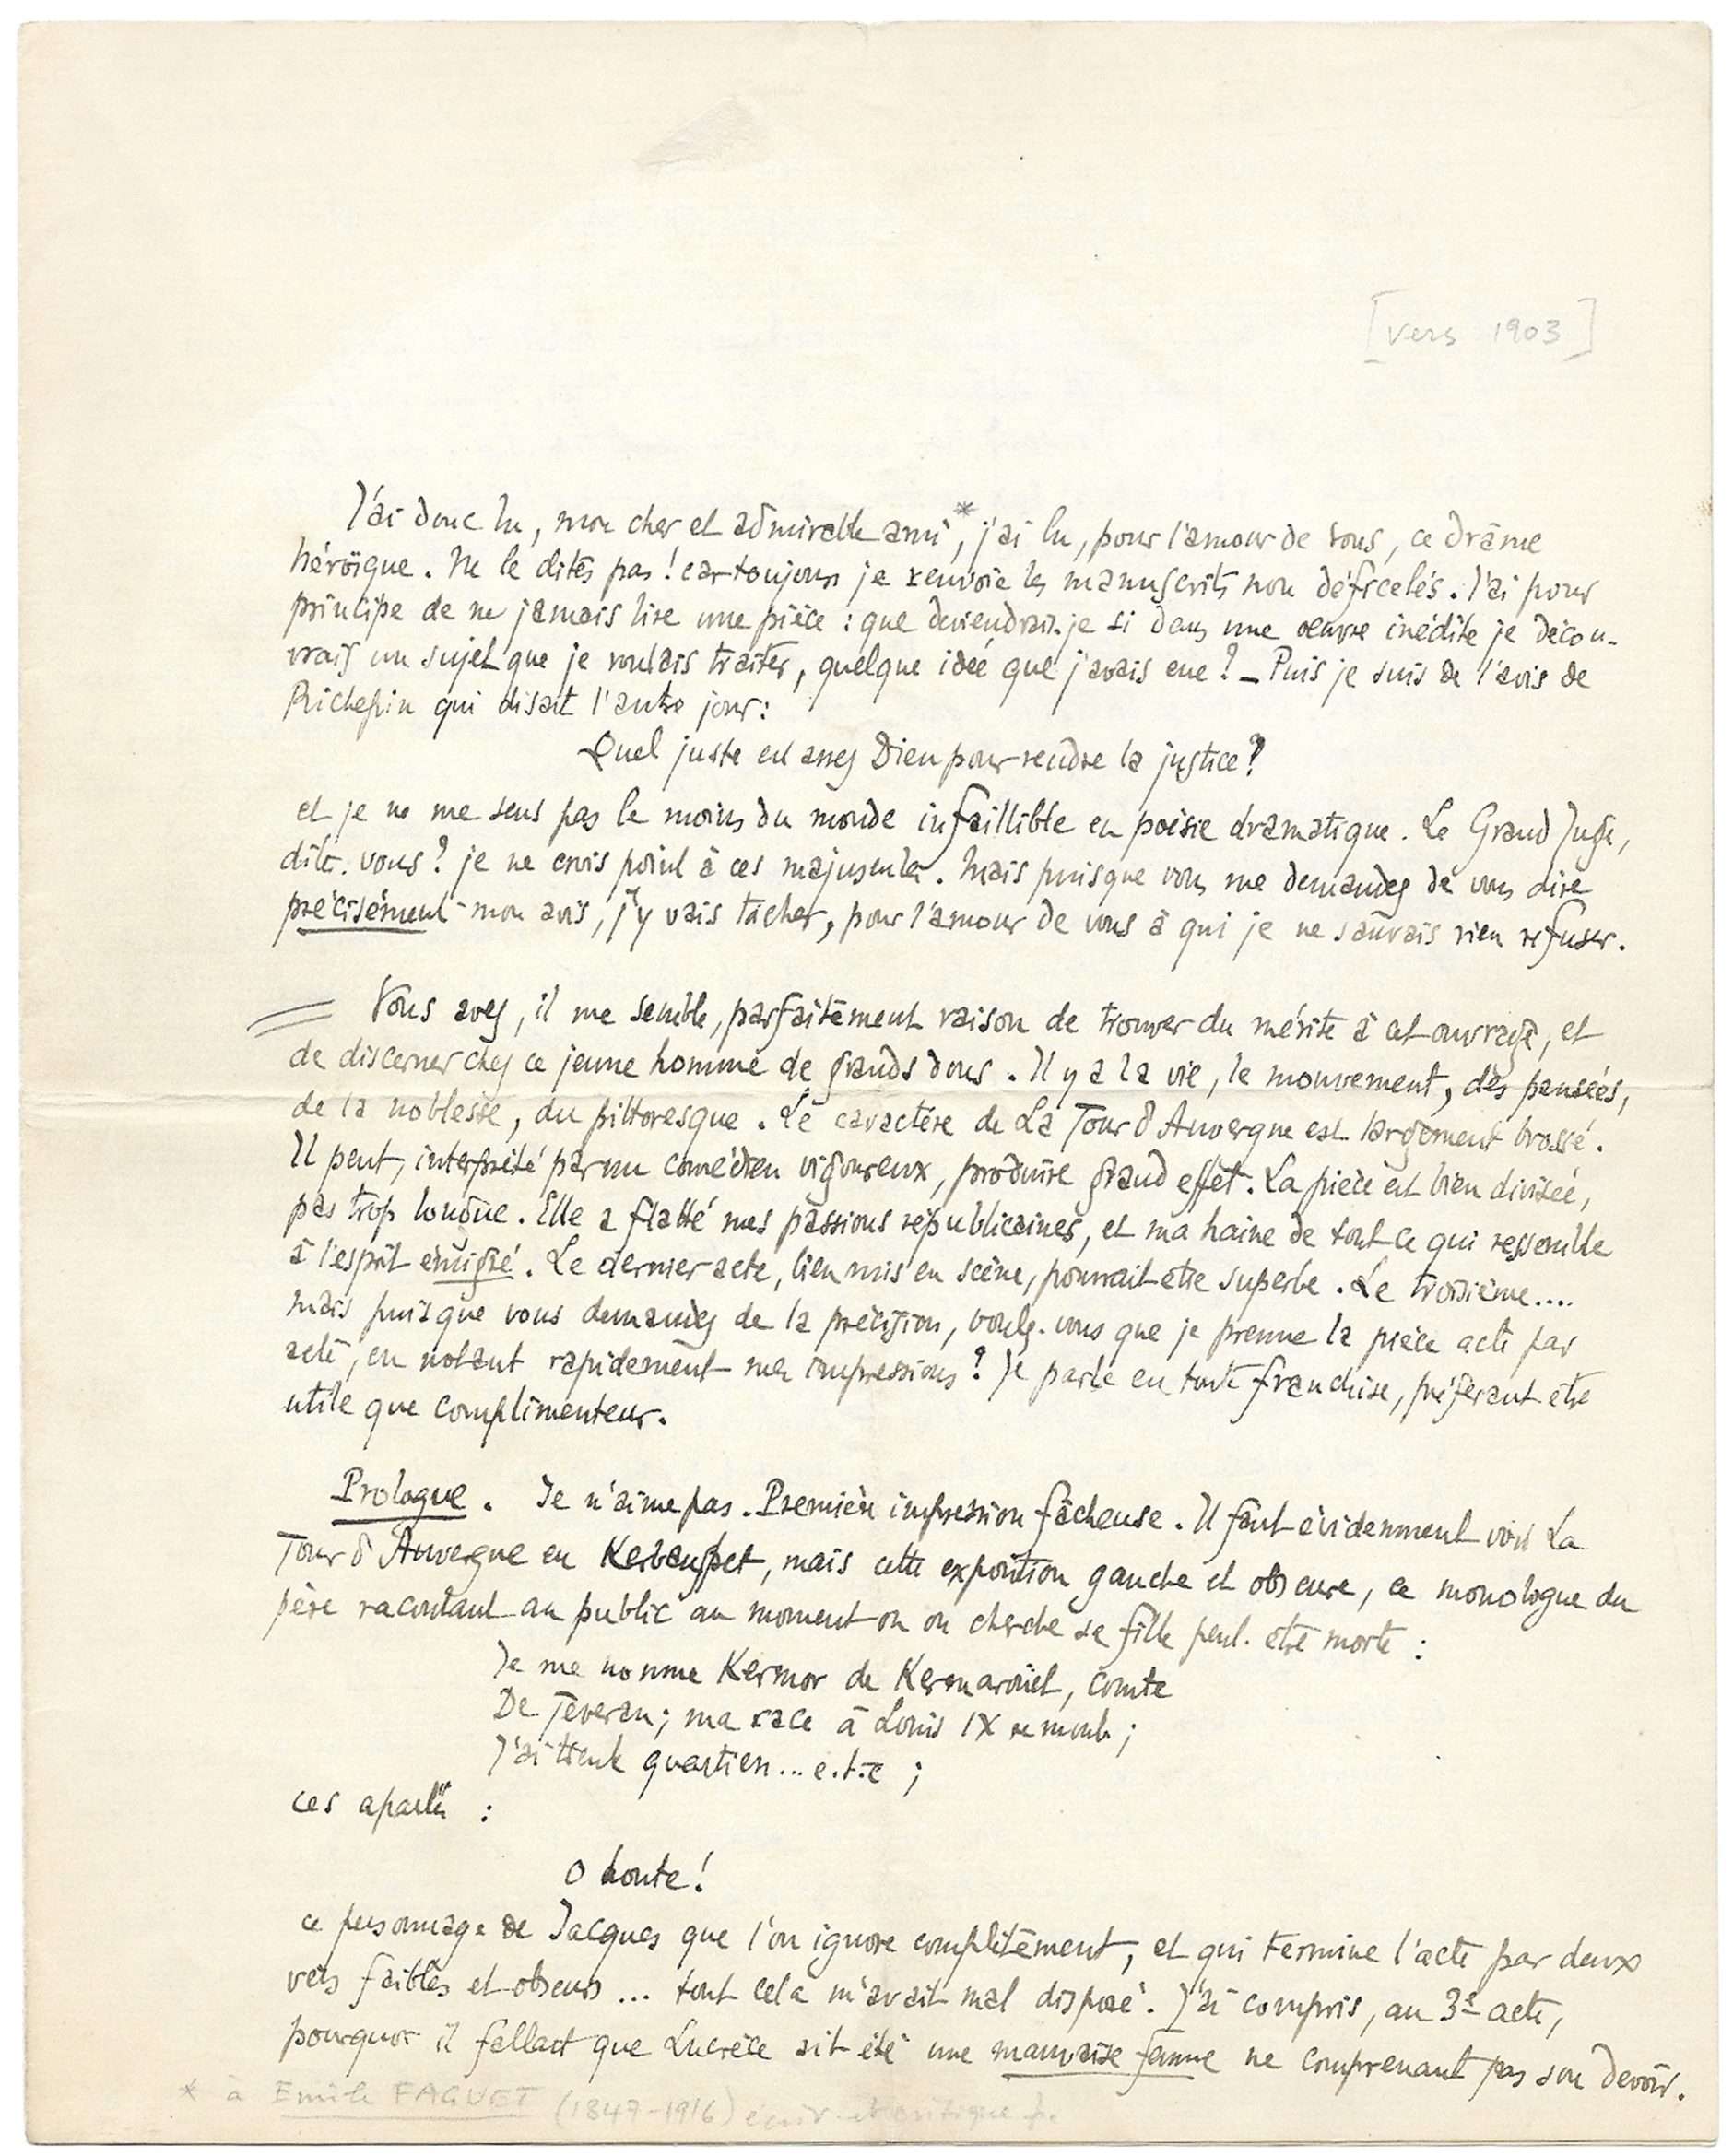 [vers 1903]
J'ai donc lu, mon cher et admirable ami*, j'ai lu, pour l'amour de vous, ce drame
héroïque. Ne le dites pas ! car toujours je renvoie les manuscrits non déficelés. J'ai pour
principe de ne jamais lire une pièce : que deviendrais-je si dans une œuvre inédite je décou-
vrais un sujet que je voulais traiter, quelque idée que j'avais eue ? — Puis je suis de l'avis de
Richepin qui disait l'autre jour :
Quel juste est assez Dieu pour rendre la justice ?
et je ne me sens pas le moins du monde infaillible en poésie dramatique. Le Grand Juge,
dites-vous ? je ne crois point à ces majuscules. Mais puisque vous me demandez de vous dire
précisément mon avis, j'y vais tâcher, pour l'amour de vous à qui je ne saurais rien refuser.
Vous avez, il me semble, parfaitement raison de trouver du mérite à cet ouvrage, et
de discerner chez ce jeune homme de grands dons. Il y a la vie, le mouvement, des pensées,
de la noblesse, du pittoresque. Le caractère de La Tour d'Auvergne est largement brossé.
Il peut, interprété par un comédien vigoureux, produire grand effet. La pièce est bien divisée,
pas trop longue. Elle a flatté mes passions républicaines, et ma haine de tout ce qui ressemble
à l'esprit émigré. Le dernier acte, bien mis en scène, pourrait être superbe. Le troisième....
mais puisque vous demandez de la précision, voulez-vous que je prenne la pièce acte par
acte, en notant rapidement mes impressions ? Je parle en toute franchise, préférant être
utile que complimenteur.
Prologue. Je n'aime pas. Première impression fâcheuse. Il faut évidemment voir La
Tour d'Auvergne en mais cette exposition gauche et obscure, ce monologue du
père racontant au public au moment où on cherche sa fille peut-être morte :
Je me nomme Kermor de Kermarouët, comte
De Teveran ; ma race à Louis IX remonte ;
J'ai trente quartiers... e.t.c ;
ces apartés :
O honte !
ce personnage de Jacques que l'on ignore complètement, et qui termine l'acte par deux
vers faibles et obscurs ... tout cela m'avait mal disposé. J'ai compris, au 3e acte,
pourquoi il fallait que Lucrèce ait été une mauvaise femme ne comprenant pas son devoir.
* à Emile FAGUET (1847-1916) écriv. et critique fr.